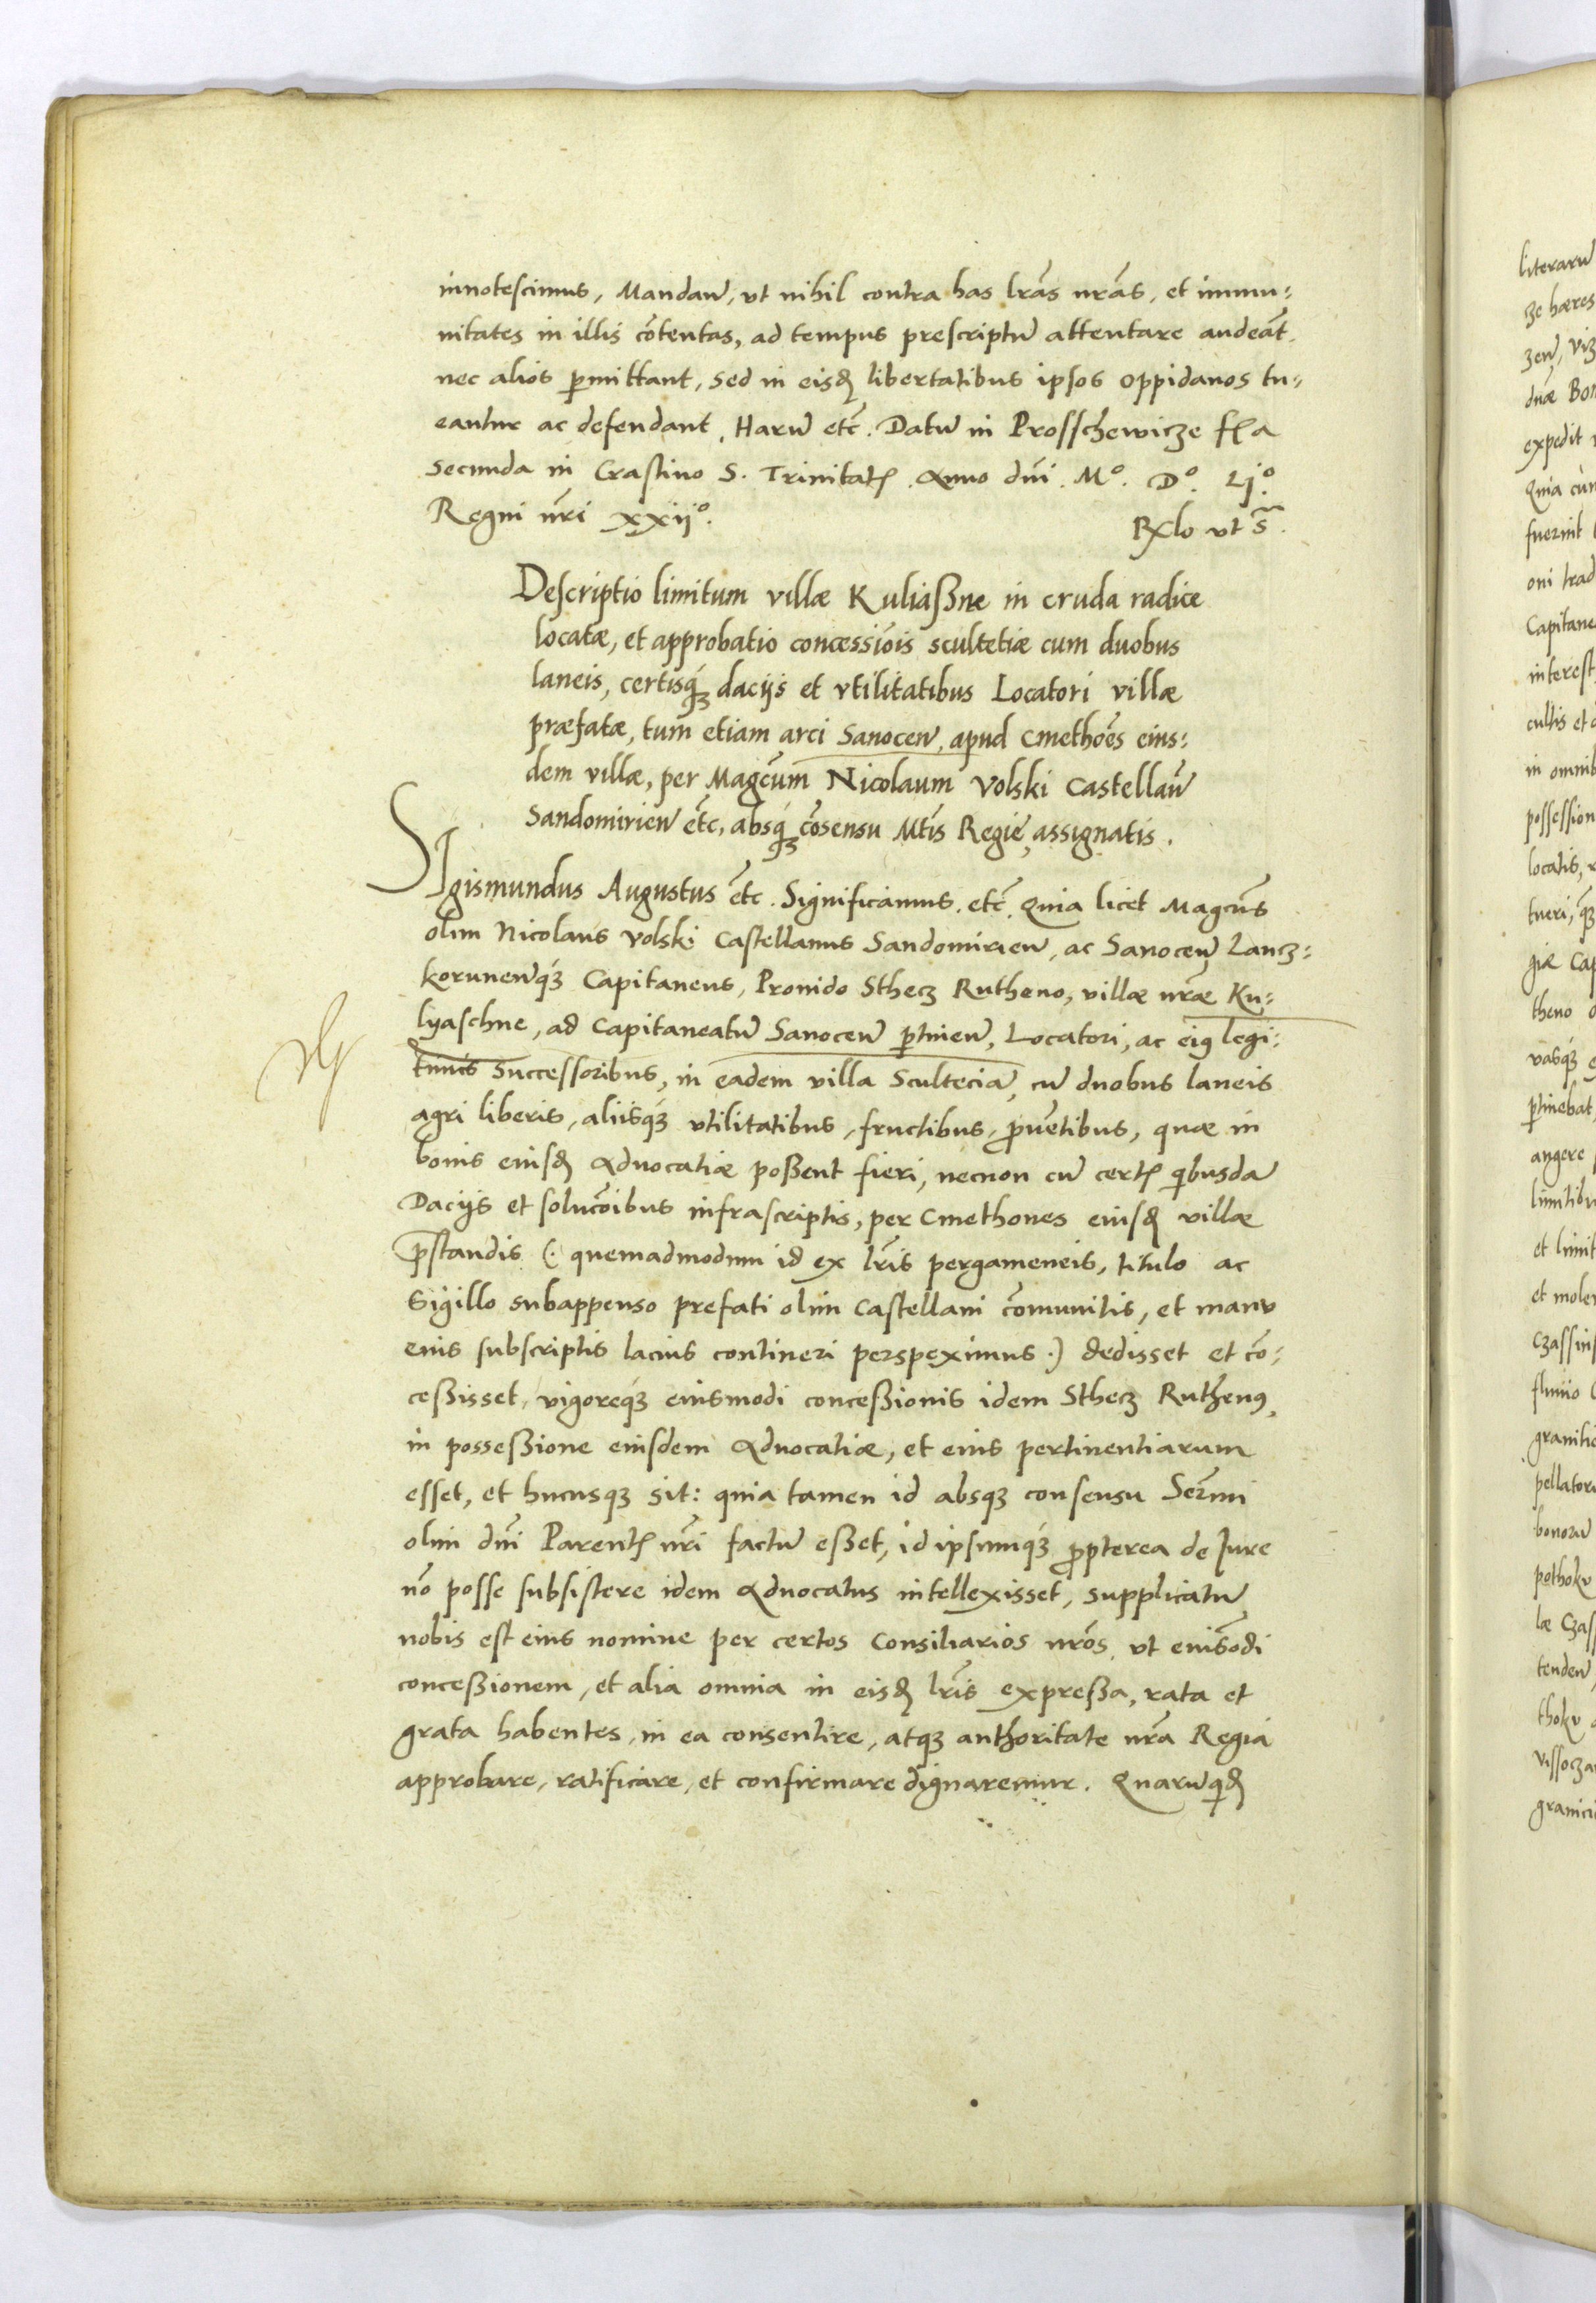 innotescimus, Mandam̄, vt nihil contra has lrãs nrãs, et immu:
nitates in illis cõtentas, ad tempus prescriptũ attentare audeãt,
nec alios ꝑmittant, sed in eisdꝫ libertatibus ipsos oppidanos tu:
eantur ac defendant, Harũ etc̃. Datũ in Prosschewicze fꝛ̃a
secunda in Crastino S. Trinitatꝭ. Anno dñi. Mº. Dº. Ljº.
Regni nr̃i xxijº.
Rꝛ̃lo vt s̃.
Descriptio limitum villæ Kuliaßne in cruda radice
locatæ, et approbatio concessiõis scultetiæ cum duobus
laneis, certisq́ꝫ dacijs et vtilitatibus Locatori villæ
præfatæ, tum etiam arci Sanoceñ, apud Cmethoẽs eius:
dem villæ, per Magc̃um Nicolaum Volski Castellanũ
Sandomirieñ etc̃, absq́ꝫ cõsensu Mtĩs Regię, assignatis.
SIgismundus Augustus etc̃. Significamus. etc̃. Quia licet Magcũs
olim Nicolaus Volski Castellanus Sandomirieñ, ac Sanoceñ Lancz:
koruneñq́ꝫ Capitaneus, Prouido Sthecz Rutheno, villæ nr̃æ Ku:
lyaschne, ad Capitaneatũ Sanoceñ ꝑtineñ, Locatori, ac eiꝰ legi:
timis successoribus, in eadem villa Scultecia, cũ duobus laneis
agri liberis, aliisq́ꝫ vtilitatibus, fructibus, ꝓuẽtibus, quæ in
bonis eiusdꝫ Aduocatiæ poßent fieri, necnon cũ certꝭ qibusdã
Dacijs et solucõibus infrascriptis, per Cmethones eiusdꝫ villæ
p̃standis (. quemadmodum id ex lrĩs pergameneis, titulo ac
Sigillo subappenso prefati olim Castellani cõmunitis, et manu
eius subscriptis lacius contineri perspeximus .) dedisset et cõ:
ceßisset, vigoreq́ꝫ eiusmodi conceßionis idem Sthecz Ruthenꝰ,
in posseßione eiusdem Aduocatiæ, et eius pertinentiarum
esset, et hucusqꝫ sit: quia tamen id absqꝫ consensu Serm̃i
olim dñi Parentꝭ nr̃i factũ eßet, id ipsumq́ꝫ ꝓpterea de Iure
nõ posse subsistere idem Aduocatus intellexisset, supplicatũ
nobis est eius nomine per certos Consiliarios nrõs, vt eiusõdi
conceßionem, et alia omnia in eisdꝫ lrĩs expreßa, rata et
grata habentes, in ea consentire, atqꝫ authoritate nrã Regia
approbare, ratificare, et confirmare dignaremur. Quarũqidꝫ
literarũ
ze hæres
zeñ, viz
dnæ Bon
expedit
Quia cùm
fuerint
oni trad
Capitane
interest
cultis et
in omnib
possession
locatis,
tueri, qꝫ
giæ Cap
theno
vasq́ꝫ e
ꝑtinebat
angere
limitibu
et limit
et molen
Czassin
fluuio
granitie
pellator
bonorũ
pothoku
læ Czas
tendeñ
thoku
vissocza
granici